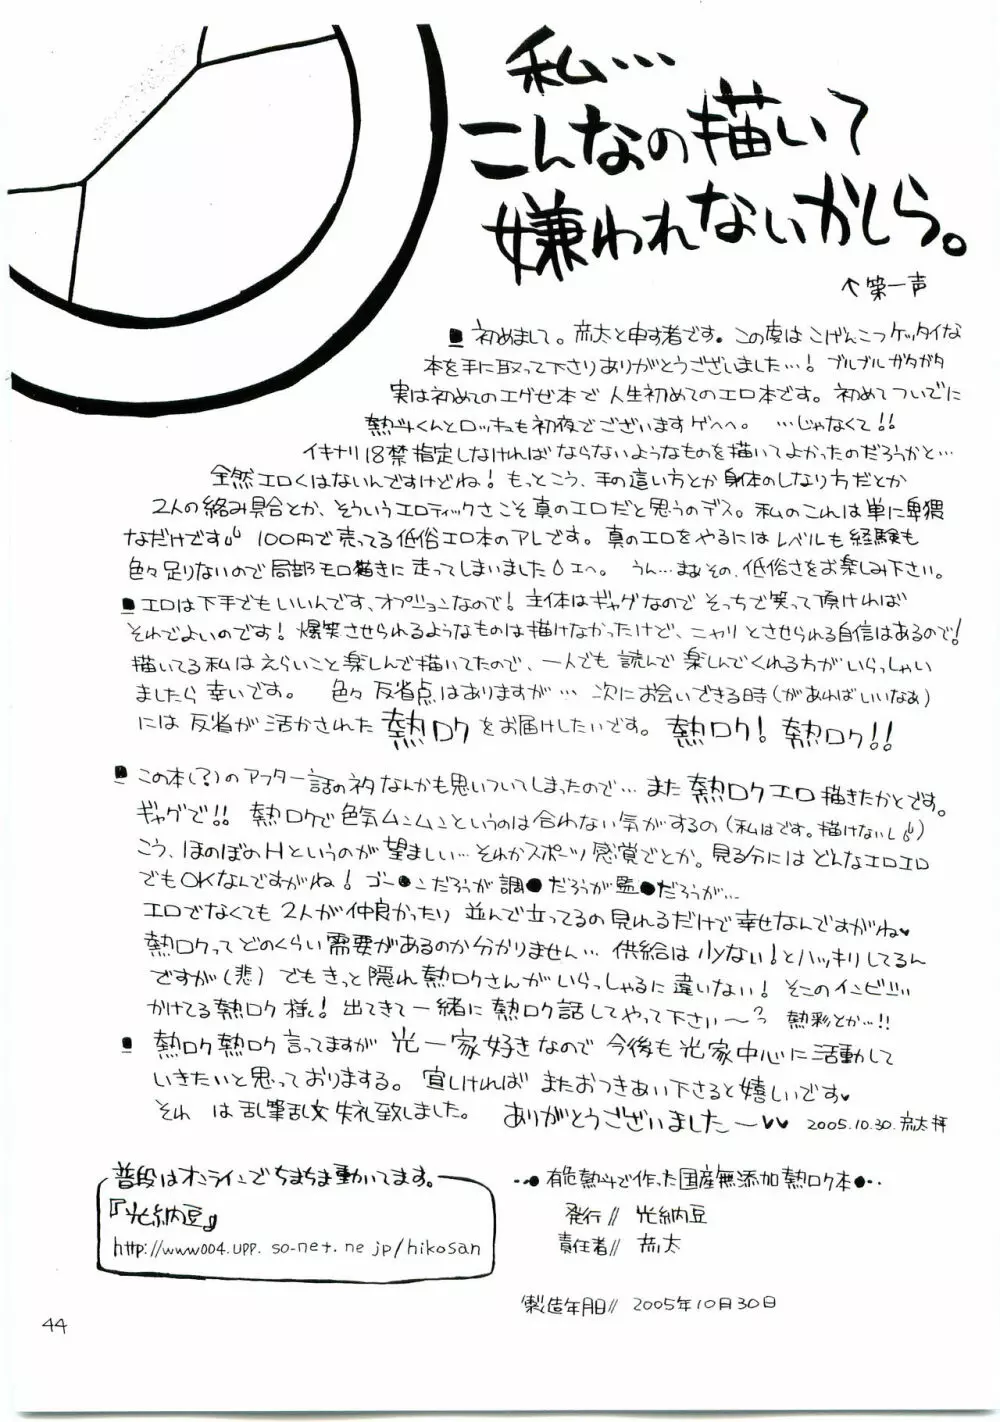 私…
こんなの描いて
嫌われないかしら。
↑第一声
■ 初めまして。彦太と申す者です。この度はこげんこつケッタイな
本を手に取って下さりありがとうございました…! ブルブルガタガタ
実は初めてのエグゼ本で人生初めてのエロ本です。初めてついでに
熱斗くんとロックも初夜でございますゲヘヘ。 …じゃなくて!!
イキナリ18禁指定しなければならないようなものを描いてよかったのだろうかと…
全然エロくはないんですけどね! もっとこう、手の這い方とか身体のしなり方だとか
2人の絡み具合とか、そういうエロティックさこそ真のエロだと思うのデス。私のこれは単に卑猥
なだけです 100円で売ってる低俗エロ本のアレです。真のエロをやるにはレベルも経験も
色々足りないので局部モロ描きに走ってしまいました うん…まぁその、低俗さをお楽しみ下さい。
■ エロは下手でもいいんです、オプションなので! 主体はギャグなのでそっちで笑って頂ければ
それでよいのです! 爆笑させられるようなものは描けなかったけど、ニヤリとさせられる自信はあるので!
描いてる私はえらいこと楽しんで描いてたので、一人でも読んで楽しんでくれる方がいらっしゃい
ましたら幸いです。 色々反省点はありますが… 次にお会いできる時(があればいいなぁ)
には反省が活かされた熱ロクをお届けしたいです。 熱ロク! 熱ロク!!
■ この本(?)のアフター話のネタなんかも思いついてしまったので… また熱ロクエロ描きたかとです。
ギャグで!! 熱ロクで色気ムンムンというのは合わない気がするの(私はです。描けないし)
こう、ほのぼのHというのが望ましい… それかスポーツ感覚でとか。見る分にはどんなエロエロ
でもOKなんですがね! ゴー●ンだろうが調●だろうが監●だろうが…
エロでなくても2人が仲良かったり並んで立ってるの見れるだけで幸せなんですがね♥
熱ロクってどのくらい需要があるのか分かりません… 供給は少ない!とハッキリしてるん
ですが(悲) でもきっと隠れ熱ロクさんがいらっしゃるに違いない! そこのインビジ
かけてる熱ロク様! 出てきて一緒に熱ロク話してやって下さい〜? 熱彩とか…!!
■ 熱ロク熱ロク言ってますが光一家好きなので今後も光家中心に活動して
いきたいと思っておりまする。宜しければまたおつきあい下さると嬉しいです♥
それ は乱筆乱文失礼致しました。 ありがとうございました〜♥♥ 2005.10.30.彦太拝
普段はオンラインでちまちま動いてます。
『光納豆』
http://www004.upp.so-net.ne.jp/hikosan
・・●有危熱斗で作った国産無添加熱ロク本●・・
発行// 光納豆
責任者// 彦太
製造年月日// 2005年10月30日
44